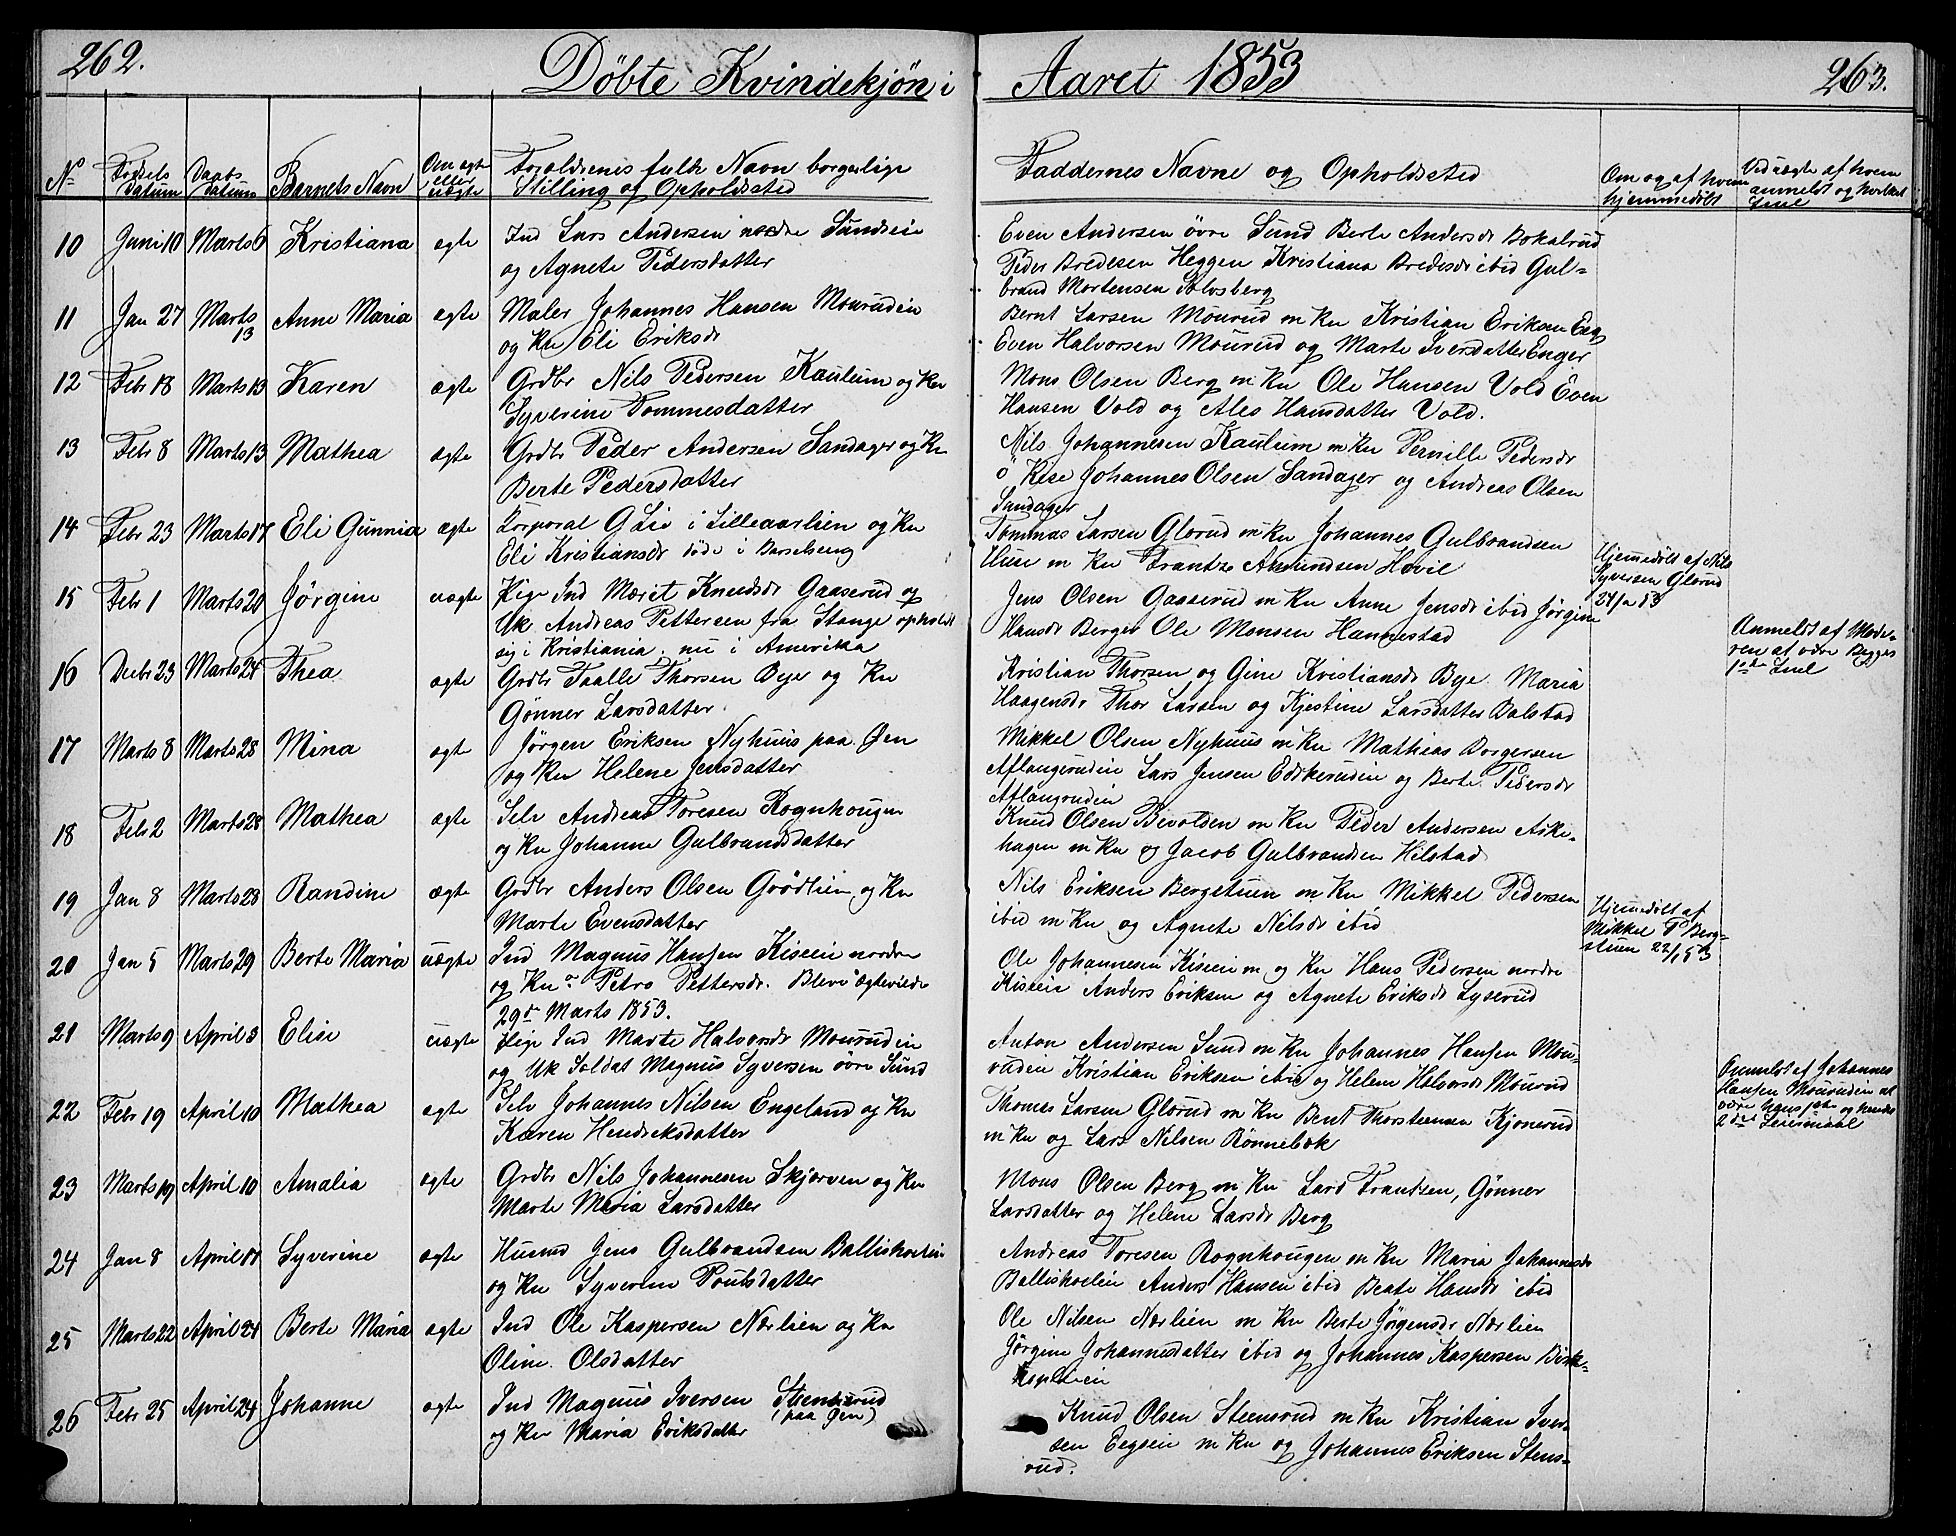 262.
Döbte Kvindekjøn i
Aaret 1853
263.
No
Fødsels Datum
Daabs Datum
Barnets Navn
Om ægte eller uægte
Foraldrenes fulde Navn borgerlige
Stilling og Opholdssted
Faddernes Navne og Opholdssted
Om og af hvem
hjemmedøbt
Ved uægte af hvem
anmeldt og hvilket
Leiel
10 Juni 10 Marts 6 Kristiana ægte Ind Lars Andersen nordre Sundeie
og Agnete Pedersdatter
Even Andersen övre Sund Berte Andersdr Bokalrud
Peder Bredesen Heggen Kristiana Bredesdr ibid Gul-
brand Mortensen Solosberg
11 Jan 27 Marts 13 Anne Maria ægte Maler Johannes Hansen Mourudeie
og Kn Eli Eriksdr
Bernt Larsen Mourud m Kn Kristian Eriksen Eeg
Even Halvorsen Mourud og Marte Iversdatter Enger
12 Febr 18 Marts 13 Karen ægte Grdbr Nils Pedersen Kaulum og Kn
Syverine Tommesdatter
Mons Olsen Berg m Kn Ole Hansen Vold Even
Hansen Vold og Ales Hansdatter Vold.
13 Febr 8 Marts 13 Mathea ægte Grdbr Peder Andersen Sandager og Kn
Berte Pedersdatter
Nils Johannesen Kaulum m Kn Pernille Pedersdr
ö Rese Johannes Olsen Sandager og Andreas Olsen
Sandager
14 Febr 23 Marts 17 Eli Gunnia ægte Korporal G Lie i Lilleaarlien og Kn
Eli Kristiansdr döde i Barselseng
Tommas Larsen Glorud m Kn Johannes Gulbrandsen
Huse m Kn Frantz Amundsen Hovie
Hjemedöbt af Nils
Syversen Glorud
24/2 53
15 Febr 1 Marts 20 Jørgine uægte Pige Ind Mærit Knudsdr Gaaserud og
Uk Andreas Pettersen fra Stange opholdt
sig i Kristiania nu i Amerika
Jens Olsen Gaaserud m Kn Anne Jensdr ibid Jørgine
Hansdr Berger Ole Monsen Hannestad
Anmeldt af Mode-
ren at være Begges
1ste Leiel
16 Decbr 23 Marts 24 Thea ægte Grdbr Paalle Thorsen Bye og Kn
Gønner Larsdatter
Kristian Thorsen og Gine Kristiansdr Bye Maria
Haagensdr Thor Larsen og Kjestine Larsdatter Bolstad
17 Marts 8 Marts 28 Mina ægte Jørgen Eriksen Nyhuus paa Øen
og Kn Helene Jensdatter
Mikkel Olsen Nyhuus m Kn Mathias Borgersen
Aflangrudeie Lars Jensen Edikerudeie og Berte Pedersdr
Aflangrudeie
18 Febr 2 Marts 28 Mathea ægte Selv Andreas Toresen Rognhougen
og Kn Johanne Gulbrandsdatter
Knud Olsen Bevolden m Kn Peder Andersen Aske-
hagen m Kn og Jacob Gulbrandsen Hilstad
19 Jan 8 Marts 28 Randine ægte Grdbr Anders Olsen Grödlien og Kn
Marte Evensdatter
Nils Eriksen Bergstuen m Kn Mikkel Pedersen
ibid m Kn og Agnete Nilsdr ibid
Hjemedöbt af
Mikkel P Berg-
stuen 22/1 53
20 Jan 5 Marts 29 Berte Maria uægte Ind Magnus Hansen Kiseeie nordre
og Kn Petra Pettersdr. Bleve ægteviede
29de Marts 1853.
Ole Johannesen Kiseeie m og Kn Hans Pedersen nordre
Kiseeie Anders Eriksen og Agnete Eriksdr Lyserud
21 Marts 9 April 3 Elise uægte Pige Ind Marte Halvorsdr Mourudeie
og Uk Soldat Magnus Syversen övre Sund
Anton Andersen Sund m Kn Johannes Hansen Mou-
rudeie Kristian Eriksen ibid og Helene Halvorsdr Mourud
Anmeldt af Johannes
Hansen Mourudeie at
være hans 1ste og hendes
2det Leiermaal
22 Febr 19 April 10 Mathea ægte Selv Johannes Nilsen Engeland og Kn
Karen Hendreksdatter
Thomas Larsen Glorud m Kn Bent Thorstensen Kjonerud
m Kn og Lars Nilsen Rönnebek
23 Marts 19 April 10 Amalia ægte Grdbr Nils Johannesen Skjørven og Kn
Marte Maria Larsdatter
Mons Olsen Berg m Kn Lars Frantsen, Gønner
Larsdatter og Helene Larsdr Berg
24 Jan 8 April 17 Syverine ægte Husmd Jens Gulbrandsen Balliskoeie
og Kn Syverine Poulsdatter
Andreas Toresen Rognhougen m Kn Maria Johannesdr
Balliskoeie Anders Hansen ibid Beate Hansdr ibid
25 Marts 22 April 24 Berte Maria ægte Ind Ole Kaspersen Nærlien og Kn
Oline Olsdatter
Ole Nilsen Nærlien m Kn Berte Jørgensdr Nærlien
Jørgine Johannesdatter ibid og Johannes Kaspersen Birk-
26 Febr 25 April 24 Johanne ægte Ind Magnus Iversen Steensrud
(paa Øen)
og Kn Maria Eriksdatter
Knud Olsen Steensrud m Kn Kristian Iver-
sen Eegseie m Kn og Johannes Eriksen Stens-
rud.